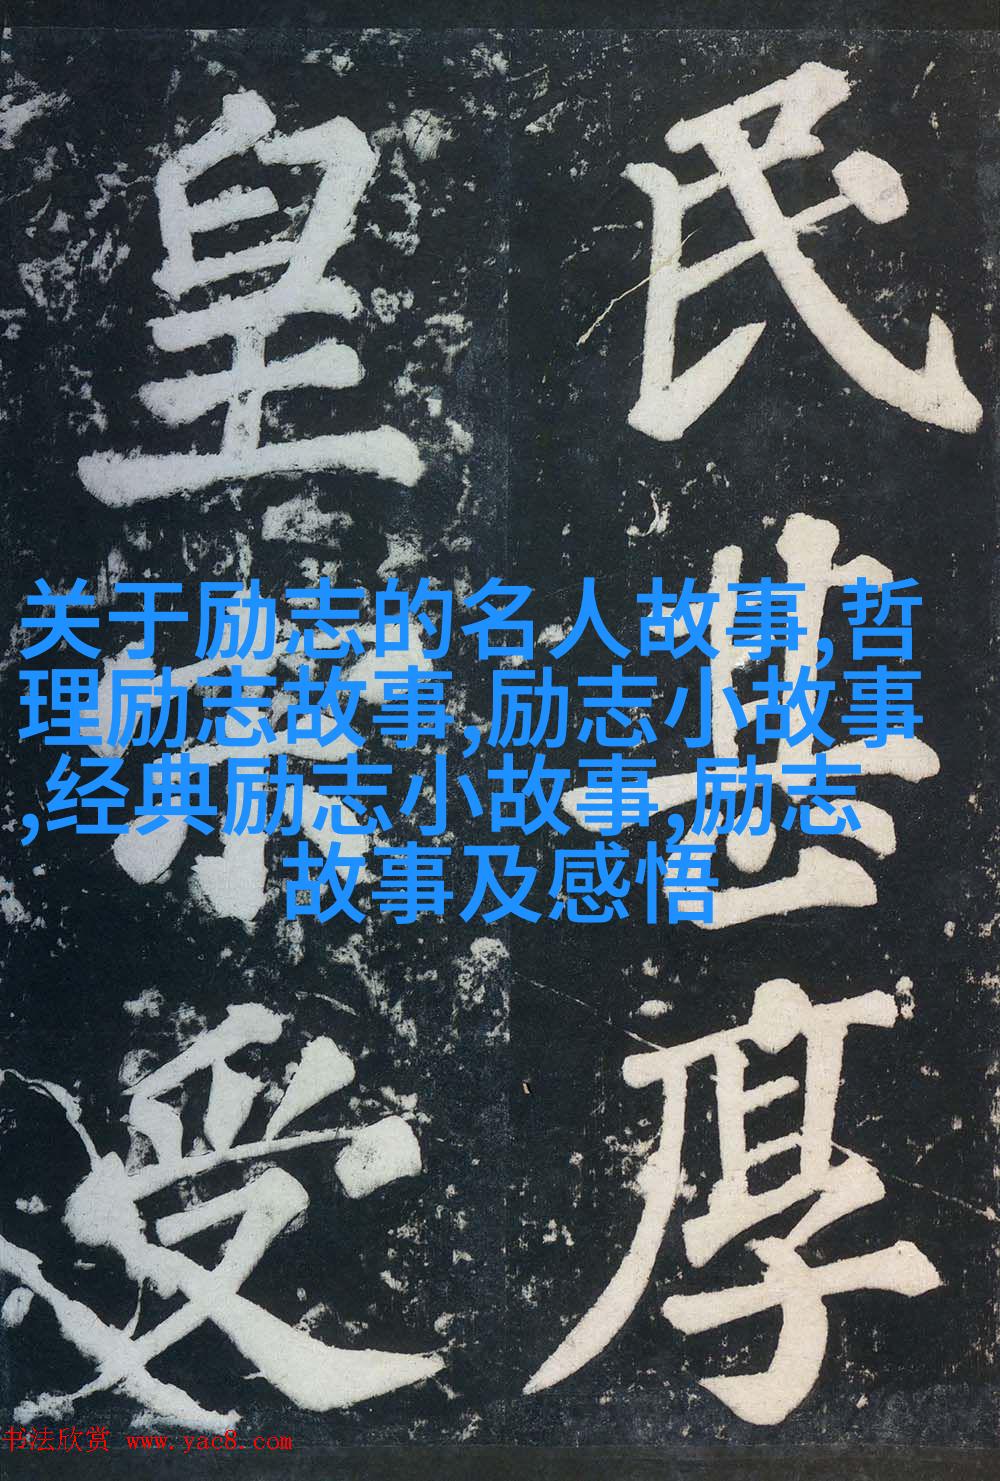 民甚厚
皇
受
关于励志的名人故事,哲
理励志故事,励志小故事
,经典励志小故事,励志
故事及感悟
书法欣赏 www.yac8.com